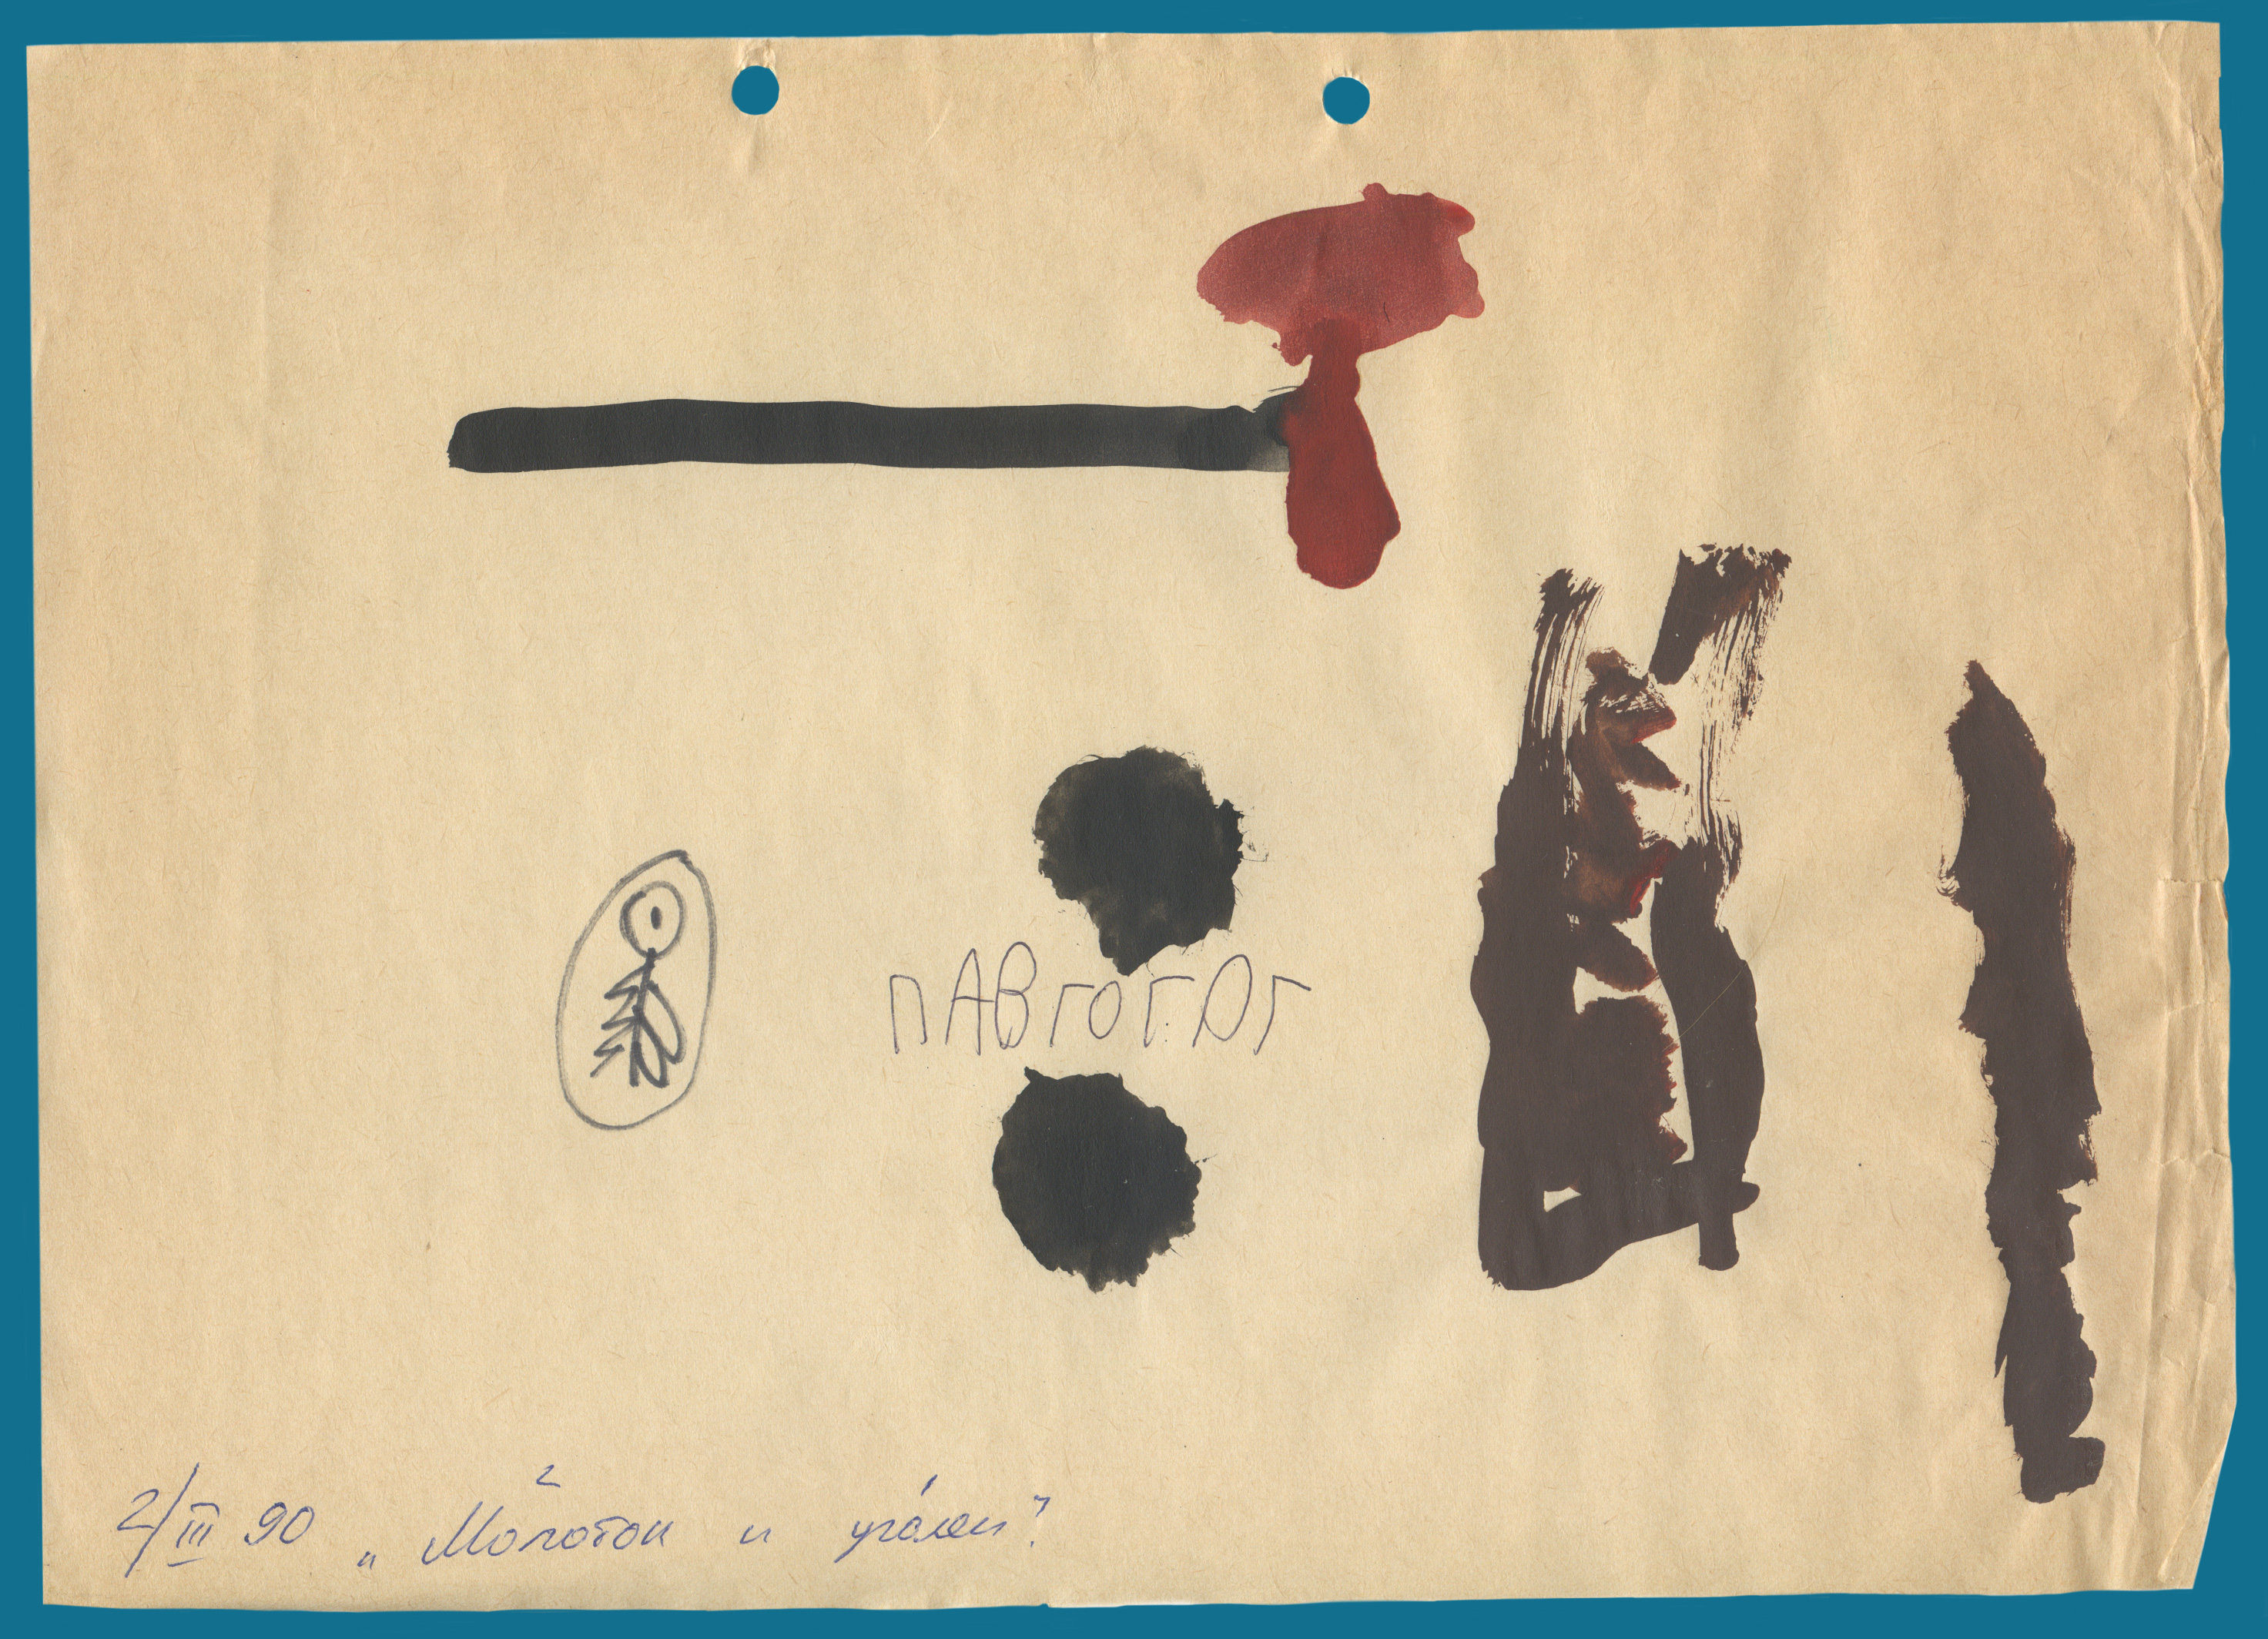 пАВгогDг
2/III 90 „Молоток и уго́лек"